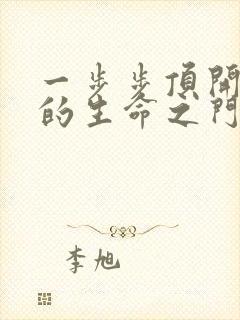 一步步頂開
的生命之門
李旭